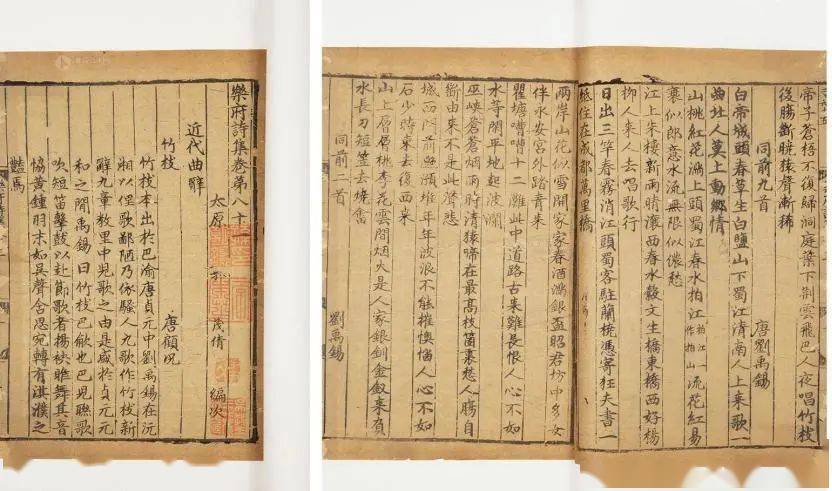 樂府詩集卷第八十一
太原 郭 茂倩 編次
近代曲辭
竹枝 唐顧況
竹枝本出於巴渝唐貞元中劉禹錫在沅
湘以俚歌鄙陋乃依騷人九歌作竹枝新
辭九章教里中兒歌之由是盛於貞元元
和之間禹錫曰竹枝巴歈也巴兒聯歌
吹短笛擊鼓以赴節歌者揚袂睢舞其音
協黃鍾羽末如吳聲含思宛轉有淇濮之
豔焉
帝子蒼梧不復歸洞庭葉下荆雲飛巴人夜唱竹枝
後腸斷曉猿聲漸稀
同前九首 唐劉禹錫
白帝城頭春草生白鹽山下蜀江清南人上來歌一
曲北人莫上動鄉情
山桃紅花滿上頭蜀江春水拍江拍江一作拍山流花紅易
衰似郎意水流無限似儂愁
江上朱樓新雨晴瀼西春水縠文生橋東橋西好楊
柳人來人去唱歌行
日出三竿春霧消江頭蜀客駐蘭橈憑寄狂夫書一
紙住在成都萬里橋
兩岸山花似雪開家家春酒滿銀盃昭君坊中多女
伴永安宮外踏青來
瞿塘嘈嘈十二灘此中道路古來難長恨人心不如
水等閒平地起波瀾
巫峽蒼蒼烟雨時清猿啼在最高枝箇裏愁人腸自
斷由來不是此聲悲
城西門前灔澦堆年年波浪不能摧懊惱人心不如
石少時東去復西來
山上層層桃李花雲間烟火是人家銀釧金釵來負
水長刀短笠去燒畬
同前二首 劉禹錫